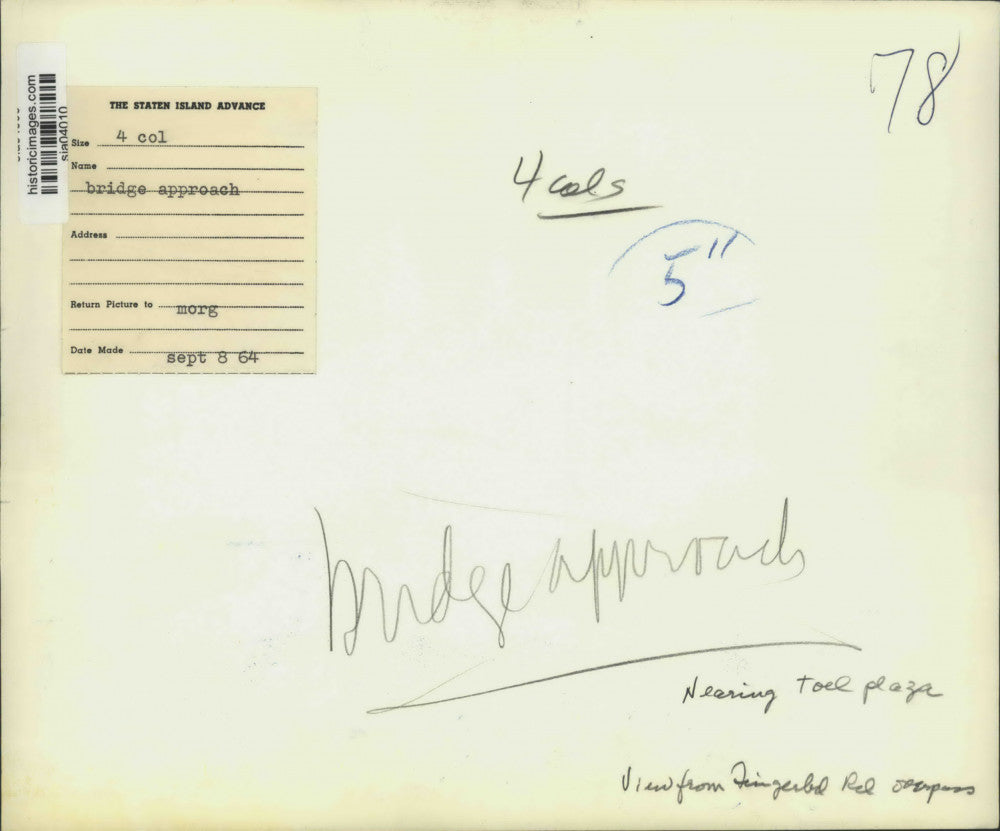 78
historicimages.com
sia04010
THE STATEN ISLAND ADVANCE
Size 4 col
Name
bridge approach
Address
Return Picture to morg
Date Made sept 8 64
4 cols
5"
bridge approach
Nearing toll plaza
View from Fingerbd Rd overpass